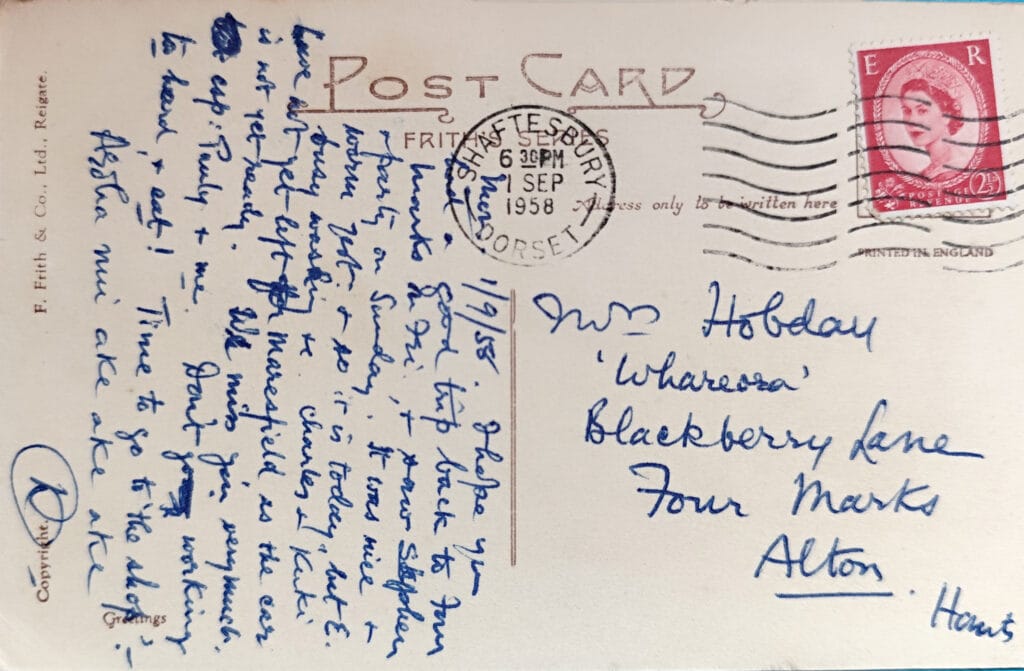 POST CARD
FRITH'S SERIES
SHAFTESBURY
6 30PM
1 SEP
1958
DORSET
E R
POSTAGE
REVENUE
2½
Address only to be written here
PRINTED IN ENGLAND
F. Frith & Co., Ltd., Reigate.
Copyright.
Greetings
Mon. 1/9/58. I hope you
had a good trip back to Four
Marks Fri, & saw Stephen
& party on Sunday. It was nice &
warm yest & so it is today, but E.
busy washing &
have not yet left for Maresfield as the car
is not yet ready. We miss you very much.
cup: &
me. Don't
working
to hard, & eat! Time to go to "the shop".
ake ake ake
K
Mrs Hobday
'Whareora'
Blackberry Lane
Four Marks
Alton
Hants